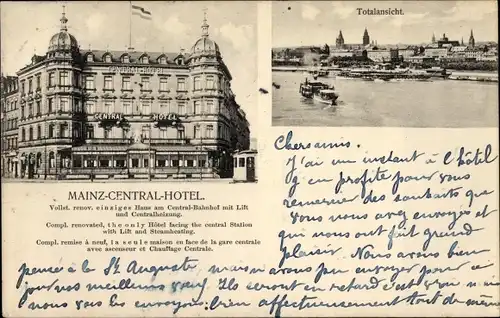 Totalansicht.
CENTRAL HOTEL
MAINZ-CENTRAL-HOTEL.
Vollst. renov. einziges Haus am Central-Bahnhof mit Lift
und Centralheizung.
Compl. renovated, the only Hôtel facing the central Station
with Lift and Steamheating.
Compl. remise à neuf, la seule maison en face de la gare centrale
avec ascenseur et Chauffage Centrale.
Chers amis.
J'ai un instant à l'hôtel
j'en profite pour vous
remercier des souhaits que
vous nous avez envoyés et
qui nous ont fait grand
plaisir. Nous avons bien
pensé à la St Auguste, mais n'avons pu envoyer pour ce
jour nos meilleurs vœux. Ils seront en retard c'est vrai
nous vous les envoyons bien affectueusement tout de même